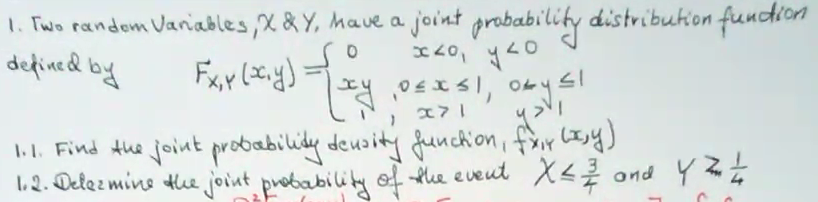 1. Two random Variables, X & Y, have a joint probability distribution function
defined by F_{X,Y}(x,y) = { 0 x<0, y<0
xy, 0≤x≤1, 0<y≤1
1, x>1 y>1
1.1. Find the joint probability density function, f_{X,Y}(x,y)
1.2. Determine the joint probability of the event X ≤ 3/4 and Y ≥ 1/4